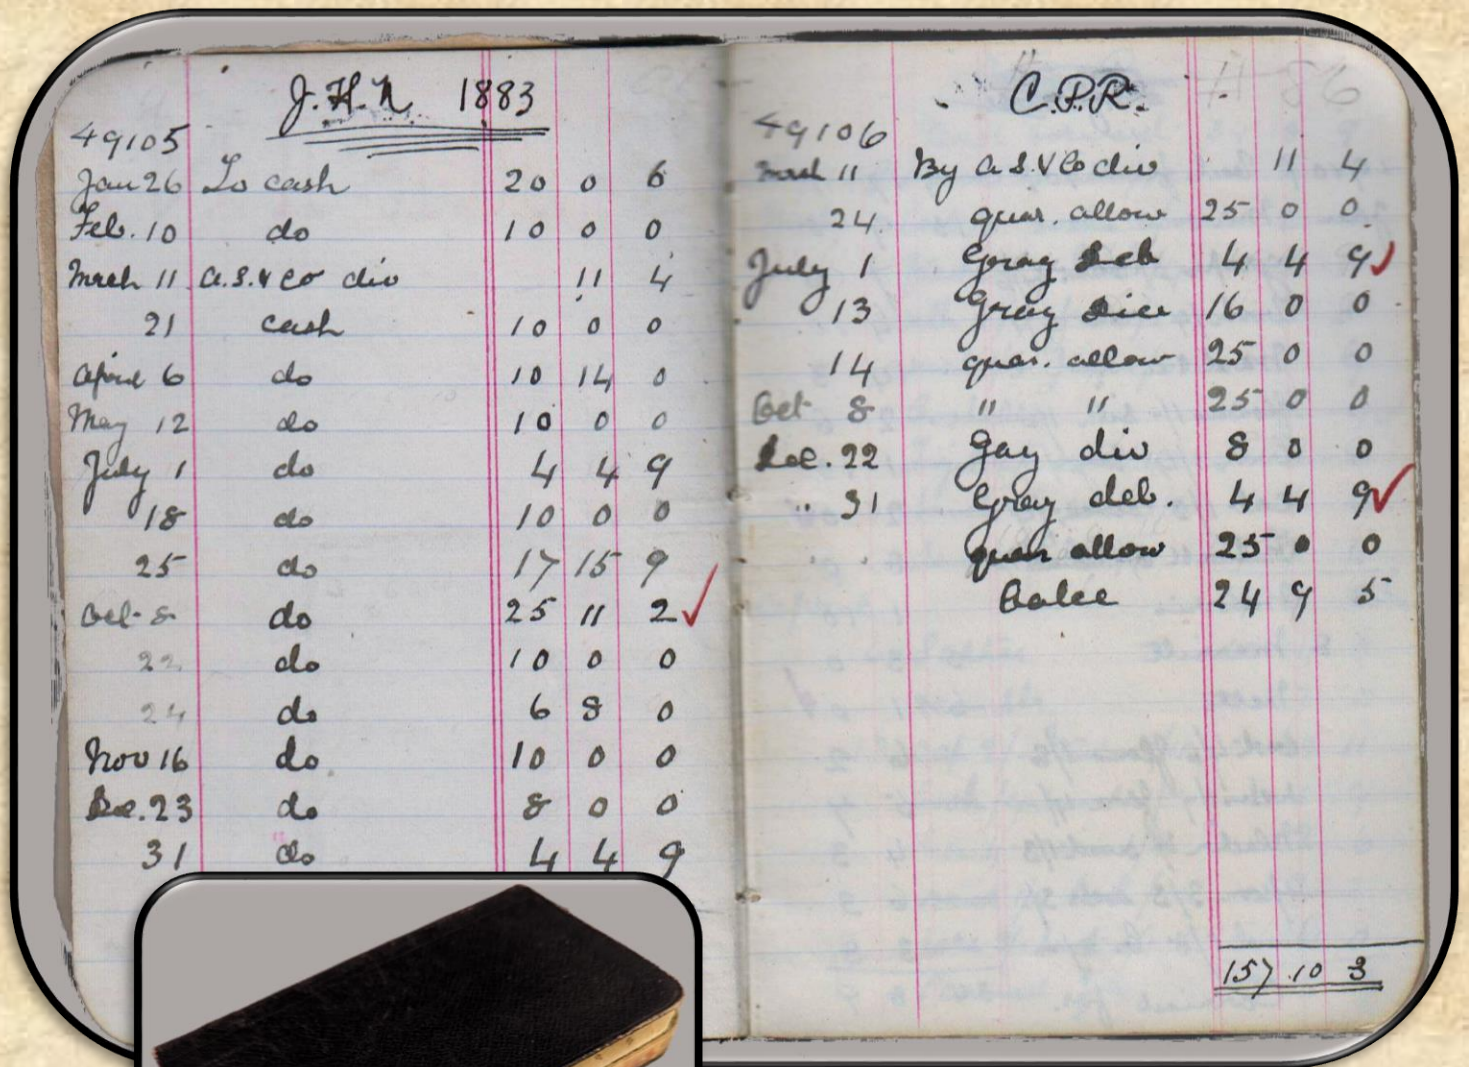 J.H.N. 1883
49105
Jan 26 To cash 20 0 6
Feb. 10 do 10 0 0
March 11 a.S.& Co div 11 4
21 cash 10 0 0
April 6 do 10 14 0
May 12 do 10 0 0
July 1 do 4 4 9
18 do 10 0 0
25 do 17 15 9
Oct. 8 do 25 11 2 ✓
22 do 10 0 0
24 do 6 8 0
Nov 16 do 10 0 0
Dec. 23 do 8 0 0
31 do 4 4 9
C.P.R.
49106
March 11 By a.S.& Co div 11 4
24 quar. allow 25 0 0
July 1 Gray deb 4 4 9 ✓
13 Gray 16 0 0
14 quar. allow 25 0 0
Oct 8 " " 25 0 0
Dec. 22 Gay div 8 0 0
" 31 Gray deb. 4 4 9 ✓
quar allow 25 0 0
24 9 5
157 10 3